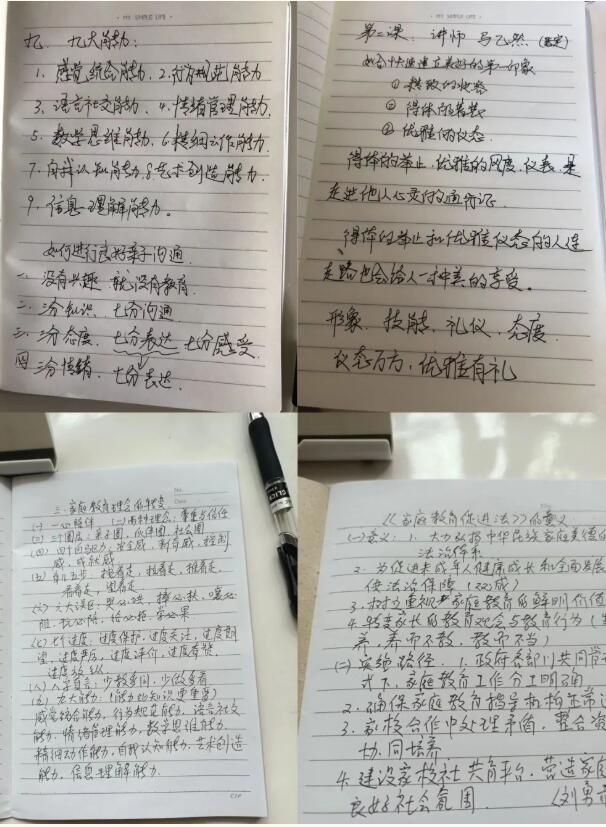 · MY SIMPLE LIFE ·
九、九大能力:
1、感觉统合能力、2、行为规范能力
3、语言社交能力、4、情绪管理能力、
5、数学思维能力、6精细动作能力、
7、自我认知能力、8艺术创造能力、
9、信息理解能力。
如何进行良好亲子沟通
一、没有兴趣、就没有教育、
二、三分知识、七分沟通
三、三分态度、七分表达 七分感受
四、三分情绪、七分表达、
· MY SIMPLE LIFE ·
第二课: 讲师 马飞然
如何十大速建立美好的第一印象
① 精致的妆容
② 得体的着装
③ 优雅的仪态
得体的举止、优雅的风度、仪表、是
走进他人心灵的通行证
得体的举止和优雅仪态的人连
走路也会给人一种美的享受。
形象、技能、礼仪、态度、
仪态万方、优雅有礼
No.
Date
三、家庭教育理念的转变
(一) 一心陪伴 (二) 两种理念: 尊重与信任
(三) 三个圈层: 亲子圈、伙伴圈、社会圈
(四) 四个内驱力: 安全感、新奇感、控制
感、成就感
(五) 育儿五步: 抱着走、拉着走、推着走、
看着走、望着走
(六) 六大误区: 哭必哄、摔必扶、
阻、犹必陪、恰必担、学必累
(七) 七个过度: 过度保护、过度关注、过度期
望、过度严厉、过度评价、过度奢赞、
过度放纵
(八) 八字育言: 少教多问、少做多看
(九) 九大能力: (能力比知识更重要)
感觉统合能力、行为规范能力、语言社交
能力、情绪管理能力、数学思维能力、
精细动作能力、自我认知能力、艺术创造
能力、信息理解能力。
CLICK
《家庭教育促进法》的意义
(一) 意义: 1. 大力弘扬中华民族家庭美德的
法治体系
2. 为促进未成年人健康成长和全面发展
使法治保障
3. 树立重视家庭教育的鲜明价值
4. 转变家长的教育观念与教育行为
养、养而不教、教而不当)
(二) 实施路径: 1. 政府各部门共同
式下, 家庭教育工作分工明确
2. 确保家庭教育指导机构正常
3. 家校合作中处理矛盾、整合
协同培养
4. 建设家校社共育平台, 营造家庭
良好社会氛围